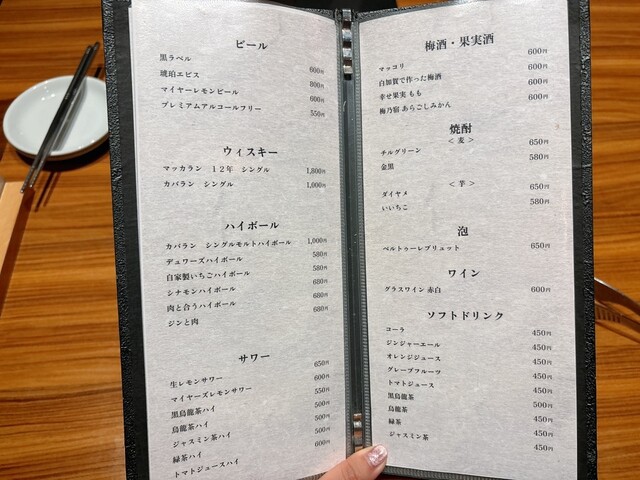 ビール
黒ラベル 600円
琥珀エビス 800円
マイヤーレモンビール 600円
プレミアムアルコールフリー 550円
ウィスキー
マッカラン 12年 シングル 1,800円
カバラン シングル 1,000円
ハイボール
カバラン シングルモルトハイボール 1,000円
デュワーズハイボール 580円
自家製いちごハイボール 580円
シナモンハイボール 680円
肉と合うハイボール 680円
ジンと肉 680円
サワー
生レモンサワー 650円
マイヤーズレモンサワー 600円
黒烏龍茶ハイ 550円
烏龍茶ハイ 500円
ジャスミン茶ハイ 500円
緑茶ハイ 500円
トマトジュースハイ 600円
梅酒・果実酒
マッコリ 600円
白加賀で作った梅酒 600円
幸せ果実 もも 600円
梅乃宿 あらごしみかん 600円
焼酎
<麦>
チルグリーン 650円
金黒 580円
<芋>
ダイヤメ 650円
いいちこ 580円
泡
ベルトゥーレブリュット 650円
ワイン
グラスワイン 赤白 600円
ソフトドリンク
コーラ 450円
ジンジャーエール 450円
オレンジジュース 450円
グレープフルーツ 450円
トマトジュース 450円
黒烏龍茶 500円
烏龍茶 450円
緑茶 450円
ジャスミン茶 450円